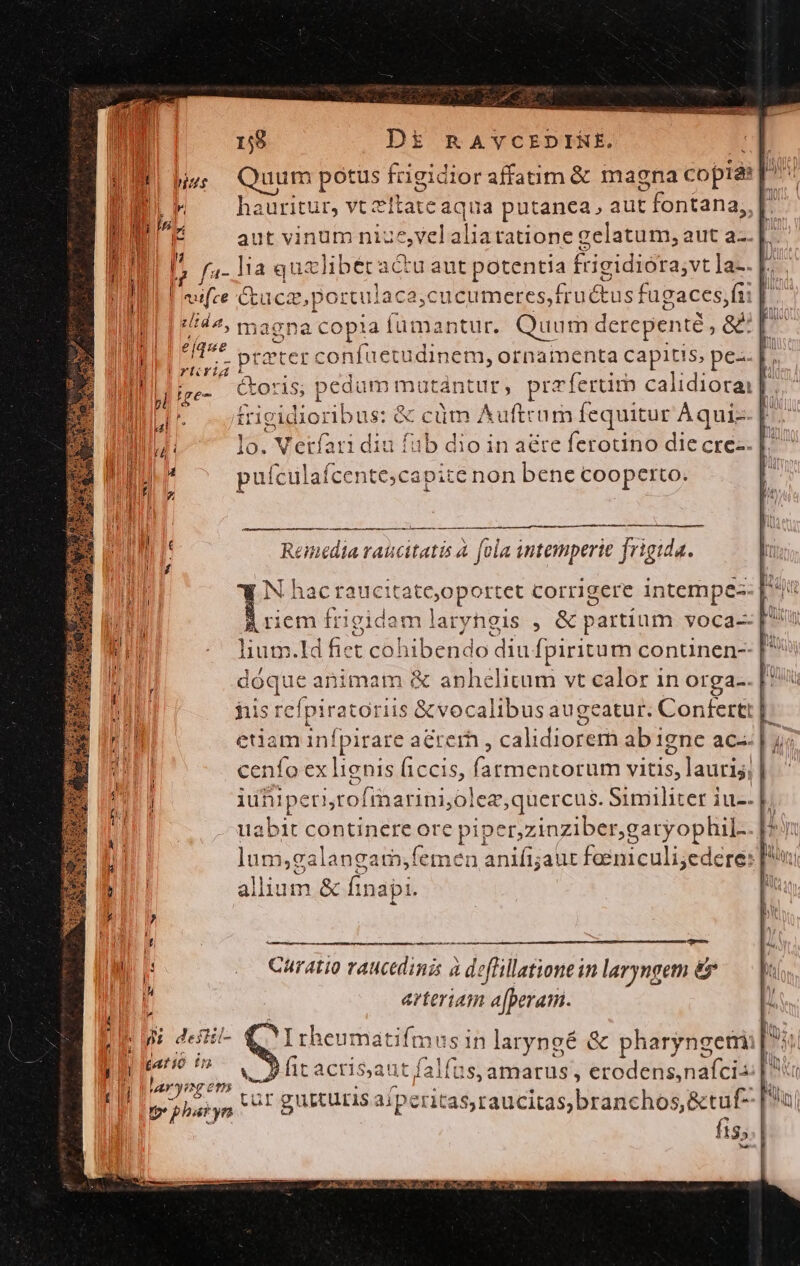 158 DE RAVCEDINE.
Quum potus frigidior affatim & magna copia
hauritur, vt æstate aqua putanea, aut fontana,
aut vinum niue, vel alia ratione gelatum, aut a-
lia quælibet actu aut potentia frigidiora, vt la-
ctucæ, portulaca, cucumeres, fructus fugaces, si
magna copia sumantur. Quum derepentè, &
præter consuetudinem, ornamenta capitis, pe-
ctoris, pedum mutantur, præsertim calidiora
frigidioribus: & cùm Austrum sequitur Aqui-
lo. Versari diu sub dio in aëre serotino die cre-
pusculascente, capite non bene cooperto.
Remedia raucitatis à sola intemperie frigida.
IN hac raucitate, oportet corrigere intempe-
riem frigidam laryngis, & partium voca-
lium. Id fiet cohibendo diu spiritum continen-
dóque animam & anhelitum vt calor in orga-
nis respiratoriis & vocalibus augeatur. Confert
etiam inspirare aërem, calidiorem ab igne ac-
censo ex lignis siccis, sarmentorum vitis, lauri,
iuniperi, rosmarini, oleæ, quercus. Similiter iu-
uabit continere ore piper, zinziber, garyophil-
lum, galangam, semen anisi, aut fœniculi, edere
allium & sinapi.
Curatio raucedinis à destillatione in laryngem &
arteriam asperam.
Si destil-
latio in
laryngem
& pharyn
SI rheumatismus in laryngé & pharyngem
fit acris, aut salsus, amarus, erodens, nasci-
tur gutturis asperitas, raucitas, branchos, & tus-
sis,